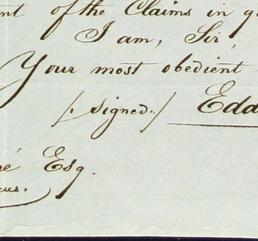 of the Claims in
I am, Sir,
Your most obedient
/signed./ Edw
Esq.